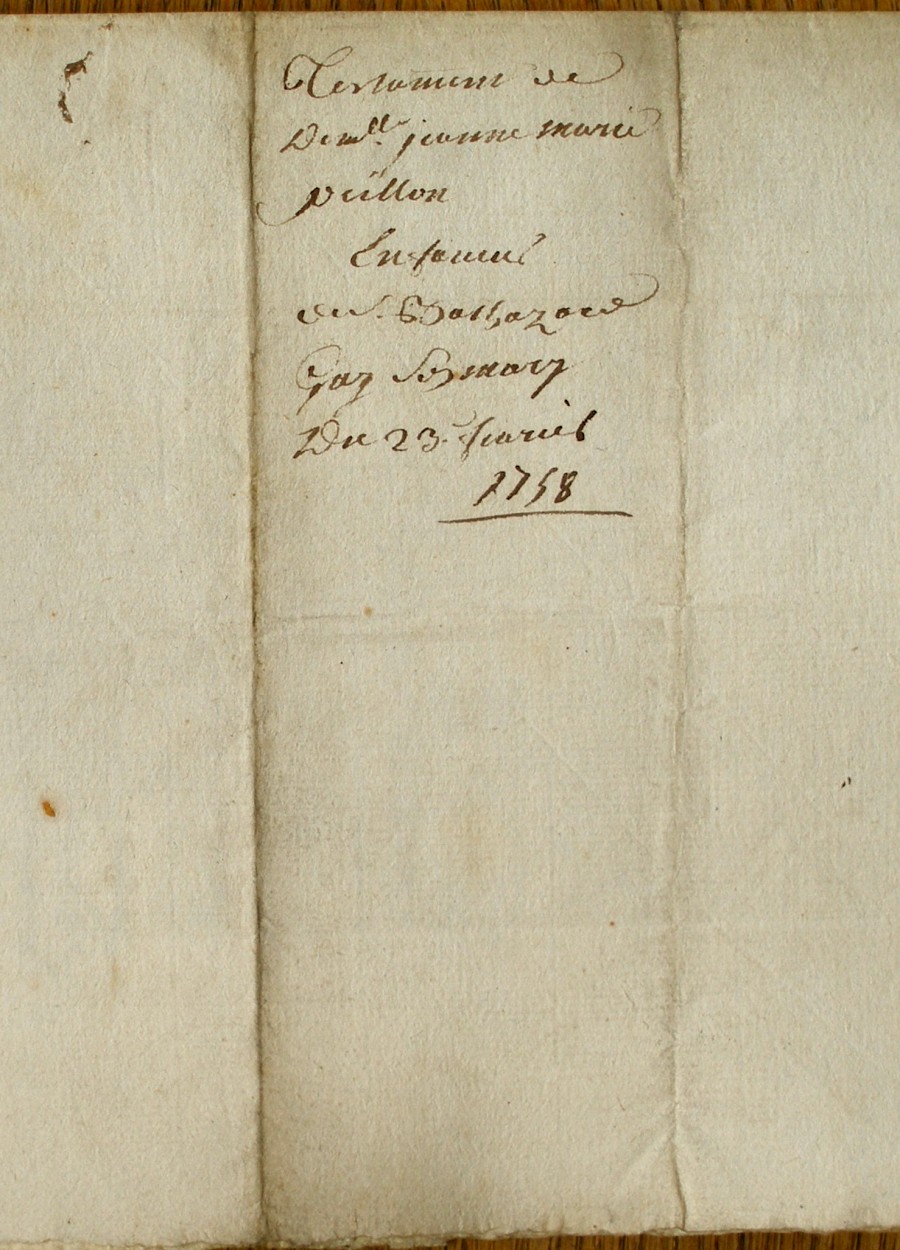 Testament de
Demlle. jeanne marie
vüllon
En faveur
du s. Balthazard
Gay Son mary
Du 23. fevrier
1758